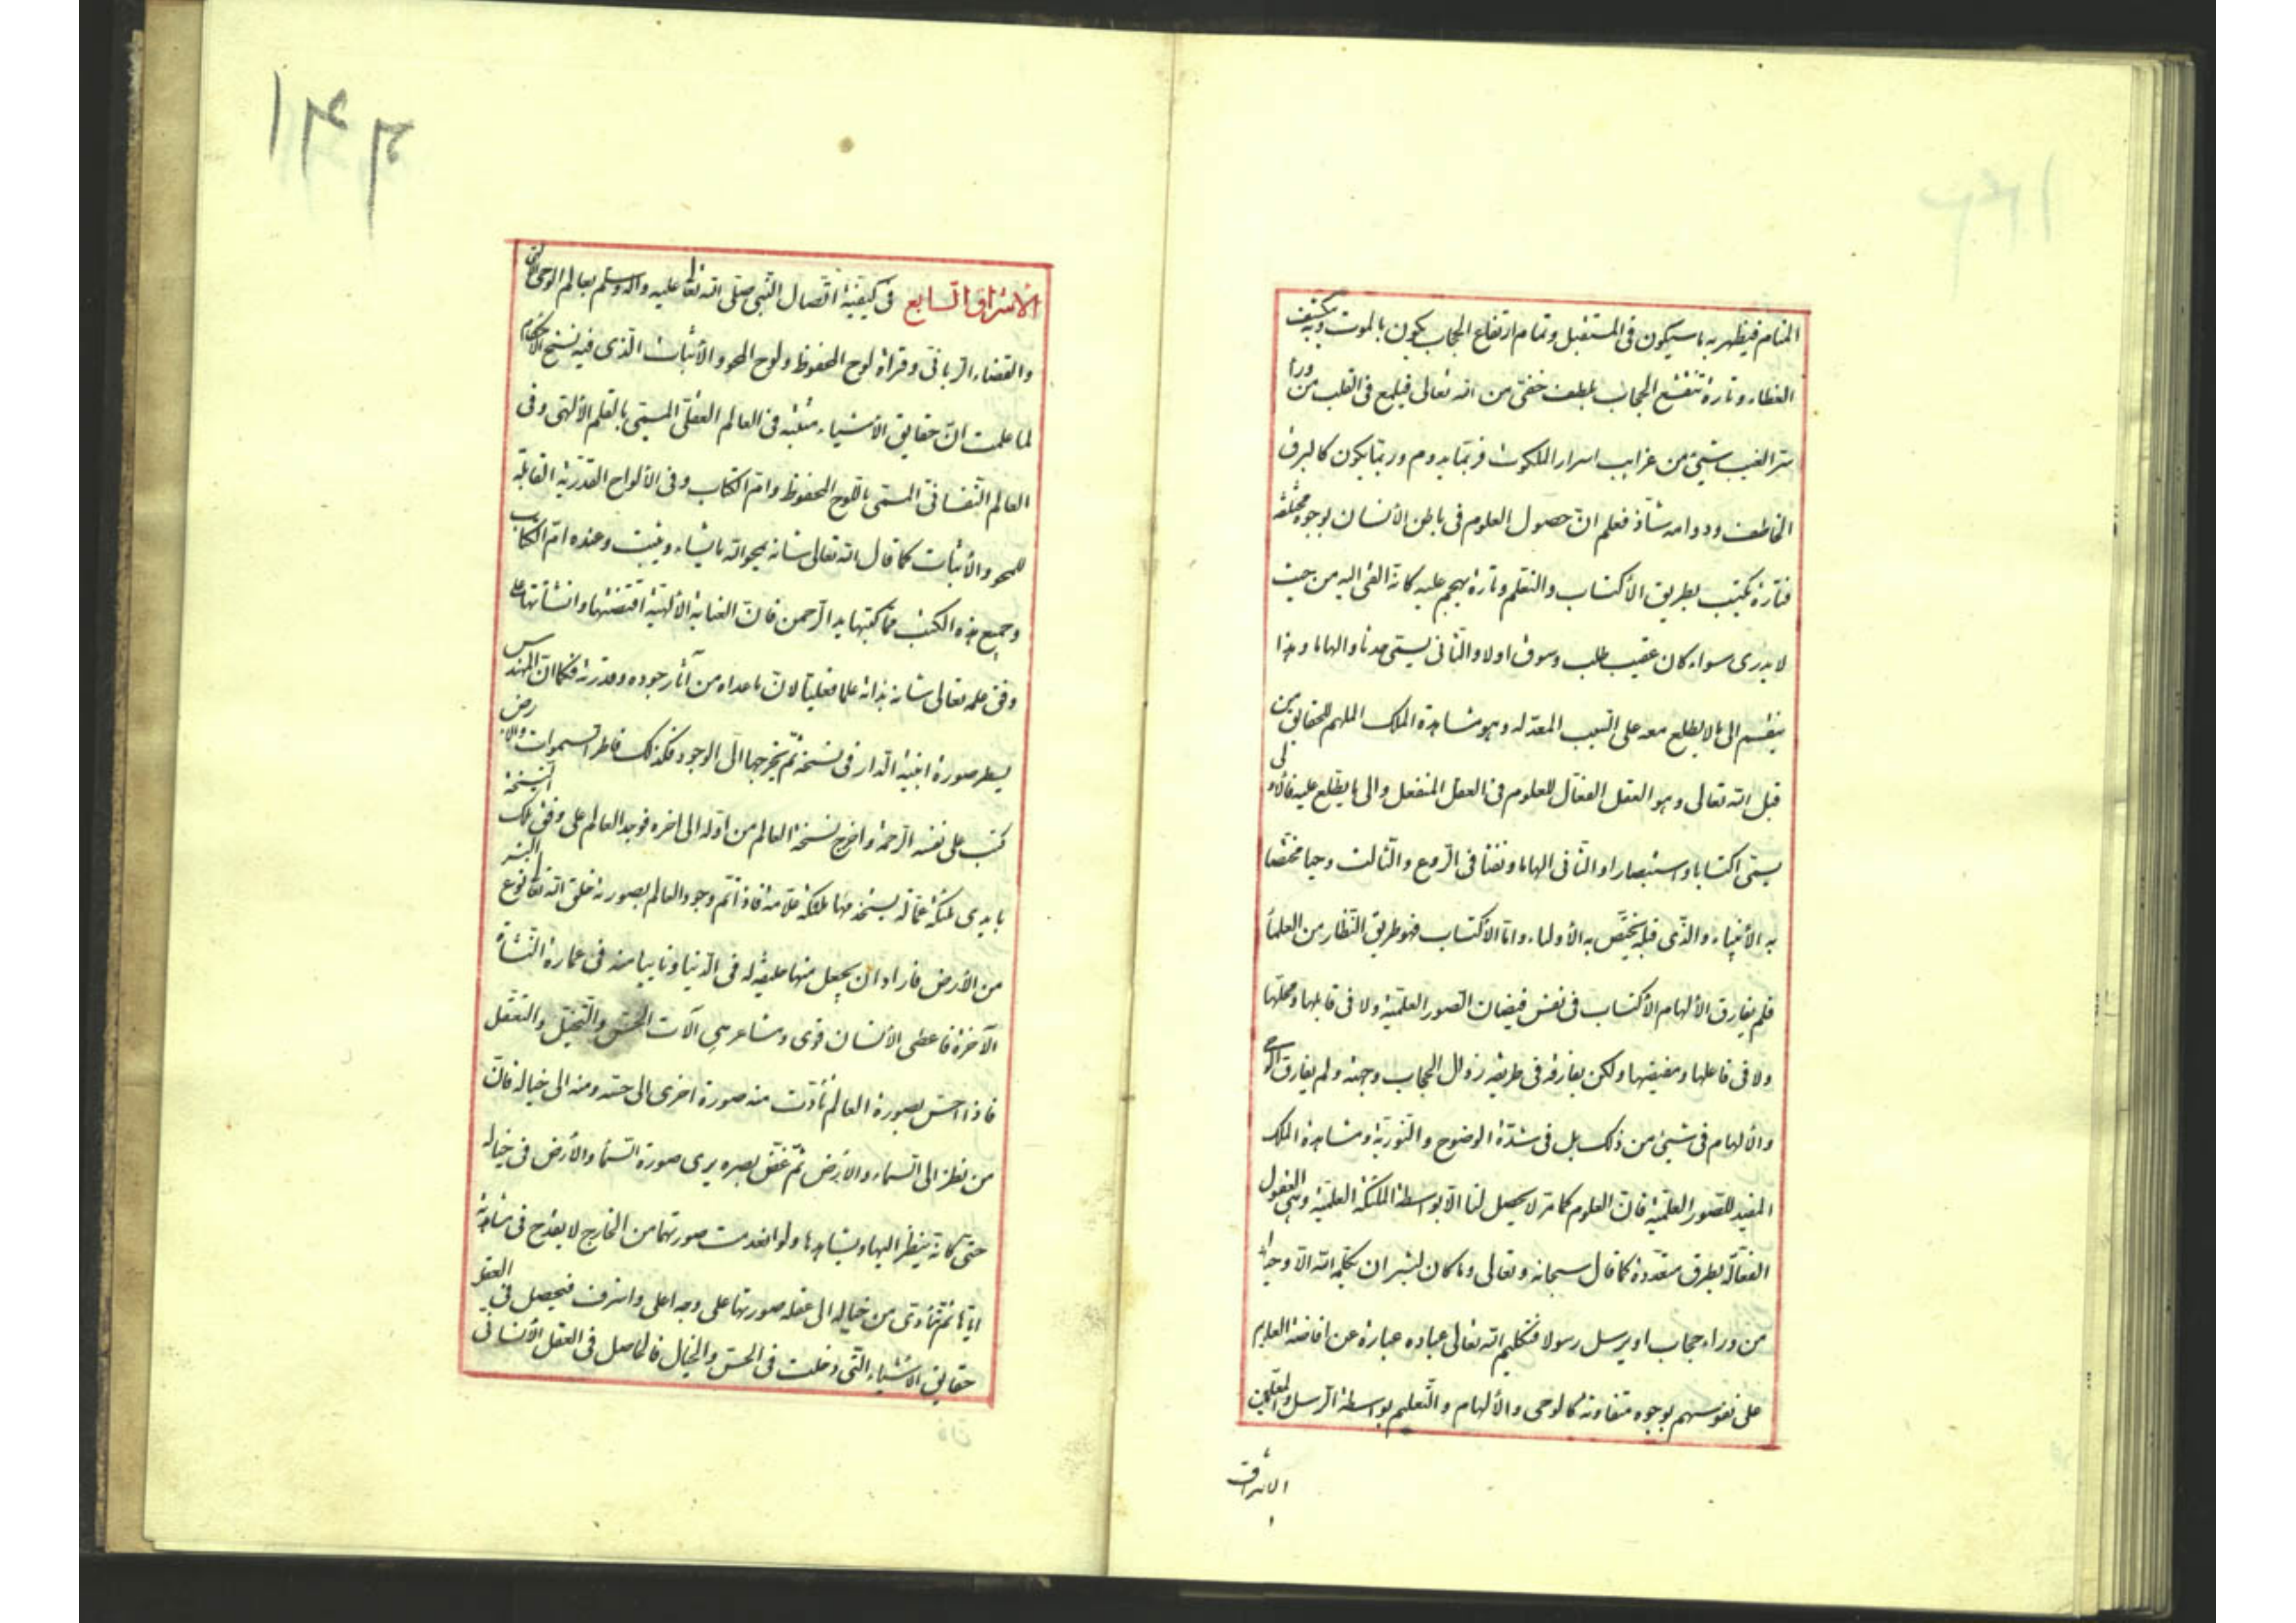 المنام فيظهر به ما سيكون فى المستقبل وتمام ارتفاع الحجاب يكون بالموت وبه يكشف
الغطاء وتارة تنقشع الحجاب بلطف خفى من الله تعالى فيلمع فى القلب من وراء
ستر الغيب شيئ من غرايب اسرار الملكوت فربما يدوم وربما يكون كالبرق
الخاطف ودوامه شاذ فعلم ان حصول العلوم فى باطن الأنسان بوجوه مختلفة
فتارة يكتسب بطريق الأكتساب والتعلم وتارة يهجم عليه كانه القى اليه من حيث
لا يدرى سواء كان عقيب طلب وسوق اولا والثانى يسمى حدسا والهاما وهذا
ينقسم الى ما لا يطلع معه على السبب المفيد له وهو مشاهدة الملك الملهم للحقايق من
قبل الله تعالى وهو العقل الفعال للعلوم فى العقل المنفعل والى ما يطلع عليه فالاولى
يسمى اكتسابا واستبصارا والثانى الهاما ونفثا فى الروع والثالث وحيا مختصا
به الأنبياء والذى قبله يختص به الأولياء واما الأكتساب فهو طريق النظار من العلماء
فلم يفارق الألهام الأكتساب فى نفس فيضان الصور العلمية ولا فى قابلها ومحلها
ولا فى فاعلها ومفيضها ولكن يفارقه فى طريقة زوال الحجاب وجهته ولم يفارق الوحى
والألهام فى شيئ من ذلك بل فى شدة الوضوح والنورية ومشاهدة الملك
المفيد للصور العلمية فان العلوم كما مر لا يحصل لنا الا بواسطة الملئكة العلمية وهى العقول
الفعالة بطرق متعددة كما قال سبحانه وتعالى وما كان لبشر ان يكلمه الله الا وحيا او
من وراء حجاب او يرسل رسولا فتكليم الله تعالى عباده عبارة عن افاضة العلوم
على نفوسهم بوجوه متفاوتة كالوحى والألهام والتعليم بواسطة الرسل والمعلمين
الاشراق
١٤٢
الاشراق السابع فى كيفية اتصال النبى صلى الله تعالى عليه وآله وسلم بعالم الوحى الالهى
والقضاء الربانى وقراءة لوح المحفوظ ولوح المحو والأثبات الذى فيه نسخ الاحكام
لما علمت ان حقايق الأشياء مثبتة فى العالم العقلى المسمى بالقلم الألهى وفى
العالم النفسانى المسمى باللوح المحفوظ وام الكتاب وفى الألواح القدرية القابلة
للمحو والأثبات كما قال الله تعالى شانه يمحو الله ما يشاء ويثبت وعنده ام الكتاب
وجميع هذه الكتب مما كتبها يد الرحمن فان العناية الألهية اقتضتها وانشأتها على
وفق علمه تعالى شانه بذاته علما فعليا لان ما عداه من آثار جوده وقدرته فكما ان المهندس
يسطر صورة ابنية الدار فى نسخة ثم يخرجها الى الوجود فكذلك فاطر السموات والارض
كتب على نفسه الرحمة واخرج نسخة العالم من اوله الى اخره فوجد العالم على وفق تلك النسخة
بايدى ملئكة عمالة يستخدمها ملئكة علامة فاذا تم وجود العالم بصورته خلق الله تعالى نوع البشر
من الأرض فاراد ان يجعل منها خليفة له فى الدنيا ونايبا منه فى عمارة النشأة
الآخرة فاعطى الأنسان قوى ومشاعر هى آلات الحس والتخيل والتعقل
فاذا احس بصورة العالم تأدت منه صورة اخرى الى حسه ومنه الى خياله فان
من نظر الى السماء والارض ثم غض بصره يرى صورة السماء والأرض فى خياله
حتى كانه ينظر اليها ويشاهدها ولو انعدمت صورتهما من الخارج لا يقدح فى مشاهدته
اياها ثم تتأدى من خياله الى عقله صورتها على وجه اعلى واشرف فيحصل فى العقل
حقايق الأشياء التى دخلت فى الحس والخيال فالحاصل فى العقل الأنسانى